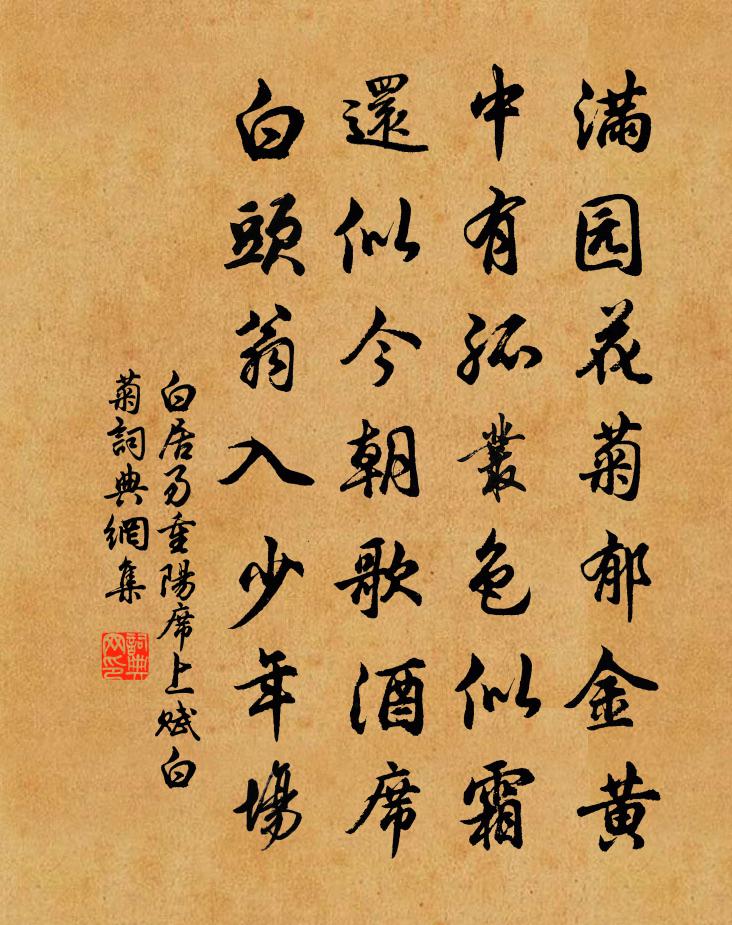 满园花菊郁金黄
中有孤叢色似霜
還似今朝歌酒席
白頭翁入少年場
白居易重陽席上赋白
菊詞典網集
詞典网印